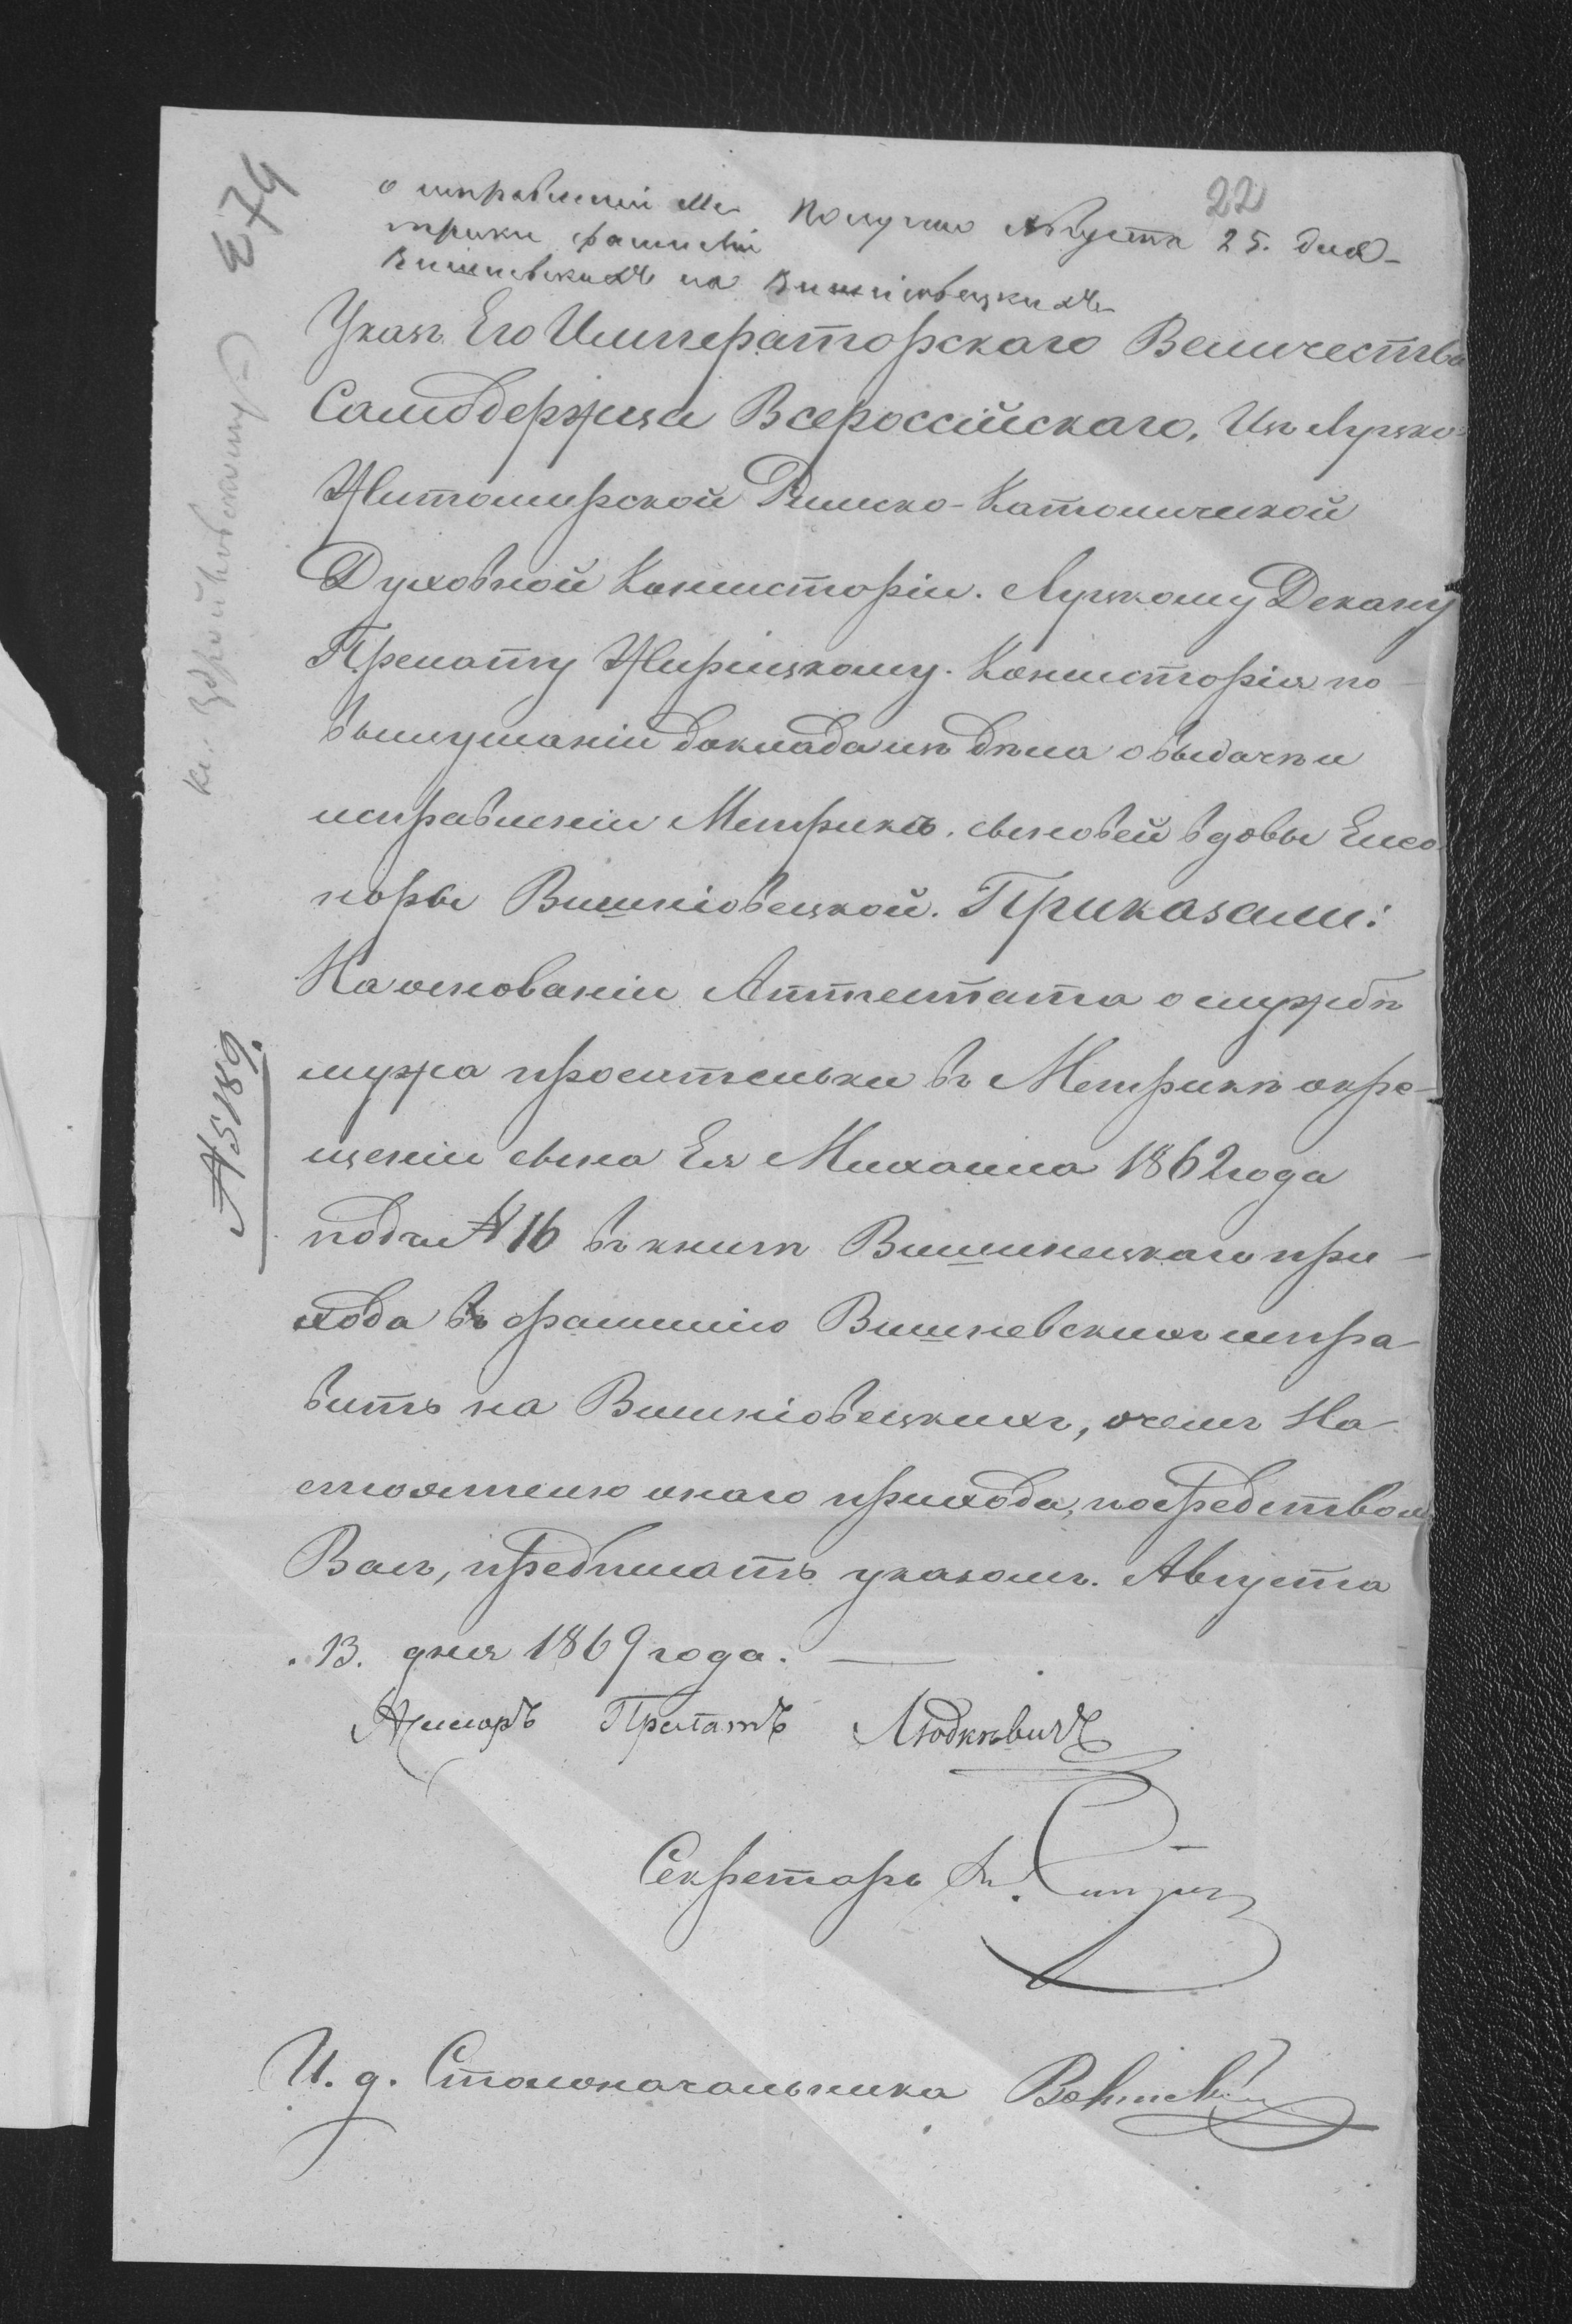 22
о исправленіи Ме-
трики фамиліи
Вишневскихъ на Вишніовецкихъ
Получено Августа 25. дня
Указъ Его Императорскаго Величества
Самодержца Всероссійскаго, Изъ Луцко-
Житомирской Римско-Католической
Духовной Консисторіи. Луцкому Декану
Прелату Жирицкому. Консисторія по
выслушаніи доклада изъ дѣла о выдачѣ и
исправленіи Метрикъ сыновей вдовы Елео
норы Вишніовецкой. Приказали:
На основаніи Аттестата о службѣ
мужа просительки въ Метрикѣ о кре-
щеніи сына Ея Михаила 1862 года
подъ № 16 въ книгѣ Вишнецкаго при-
хода въ фамилію Вишневскихъ испра-
вить на Вишніовецкихъ, о чемъ На-
стоятелю онаго прихода, посредствомъ
Васъ, предписать указомъ. Августа
13. дня 1869 года.
Прелатъ Людкѣвичъ
Секретарь
И. д. Столоначальника
№ 5189.